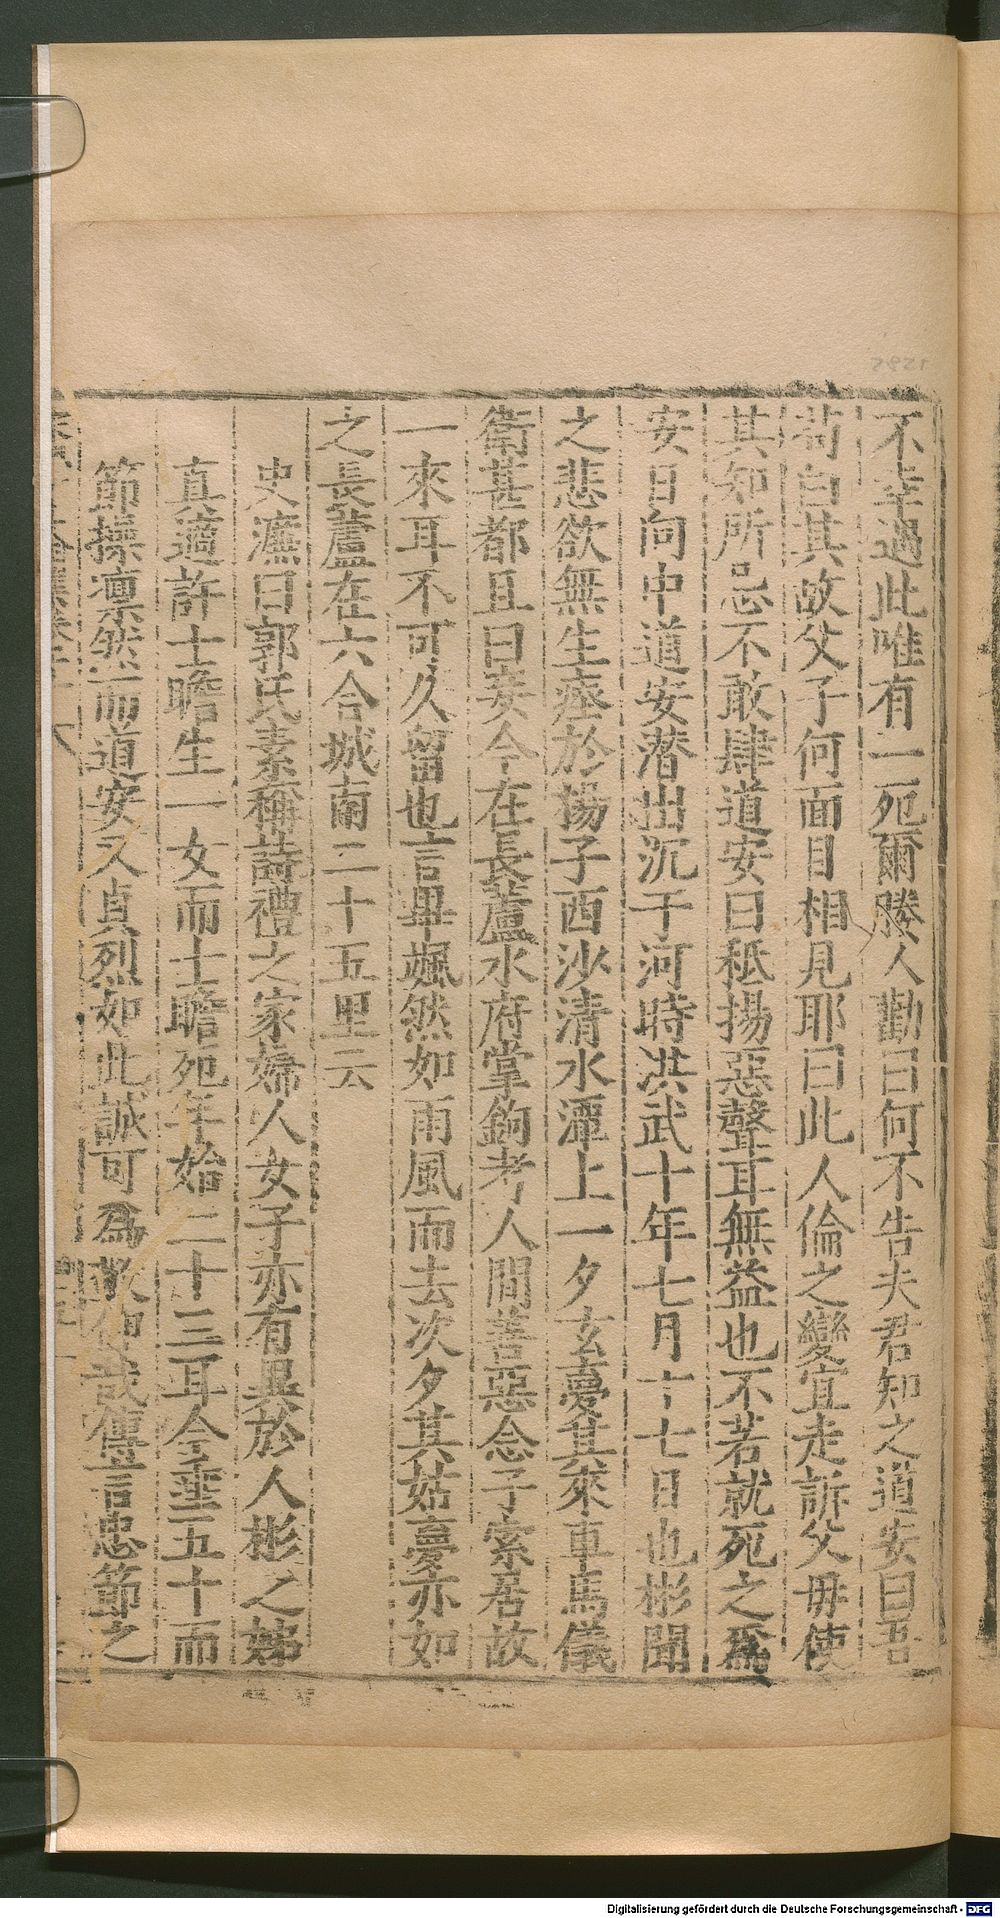 不幸遇此唯有一死爾勝人勸曰何不告夫君知之道安曰吾
苟白其故父子何面目相見耶曰此人倫之變宜走訴父毋使
其知所忌不敢肆道安曰秪揚惡聲耳無益也不若就死之爲
安日向中道安潜出沉于河時洪武十年七月十七日也彬聞
之悲欲無生瘞於揚子西沙清水潭上一夕玄夢其來車馬儀
衛甚都且曰妾今在長蘆水府掌鉤考人間善惡念子索居故
一來耳不可久留也言畢颯然如雨風而去次夕其姑夢亦如
之長蘆在六合城南二十五里云
史濂曰郭氏素稱詩禮之家婦人女子亦有異於人彬之姊
真適許士瞻生一女而士瞻死年始二十三耳今垂五十而
節操凛然而道安又貞烈如此誠可爲哉傳言忠節之
Digitalisierung gefördert durch die Deutsche Forschungsgemeinschaft - DFG